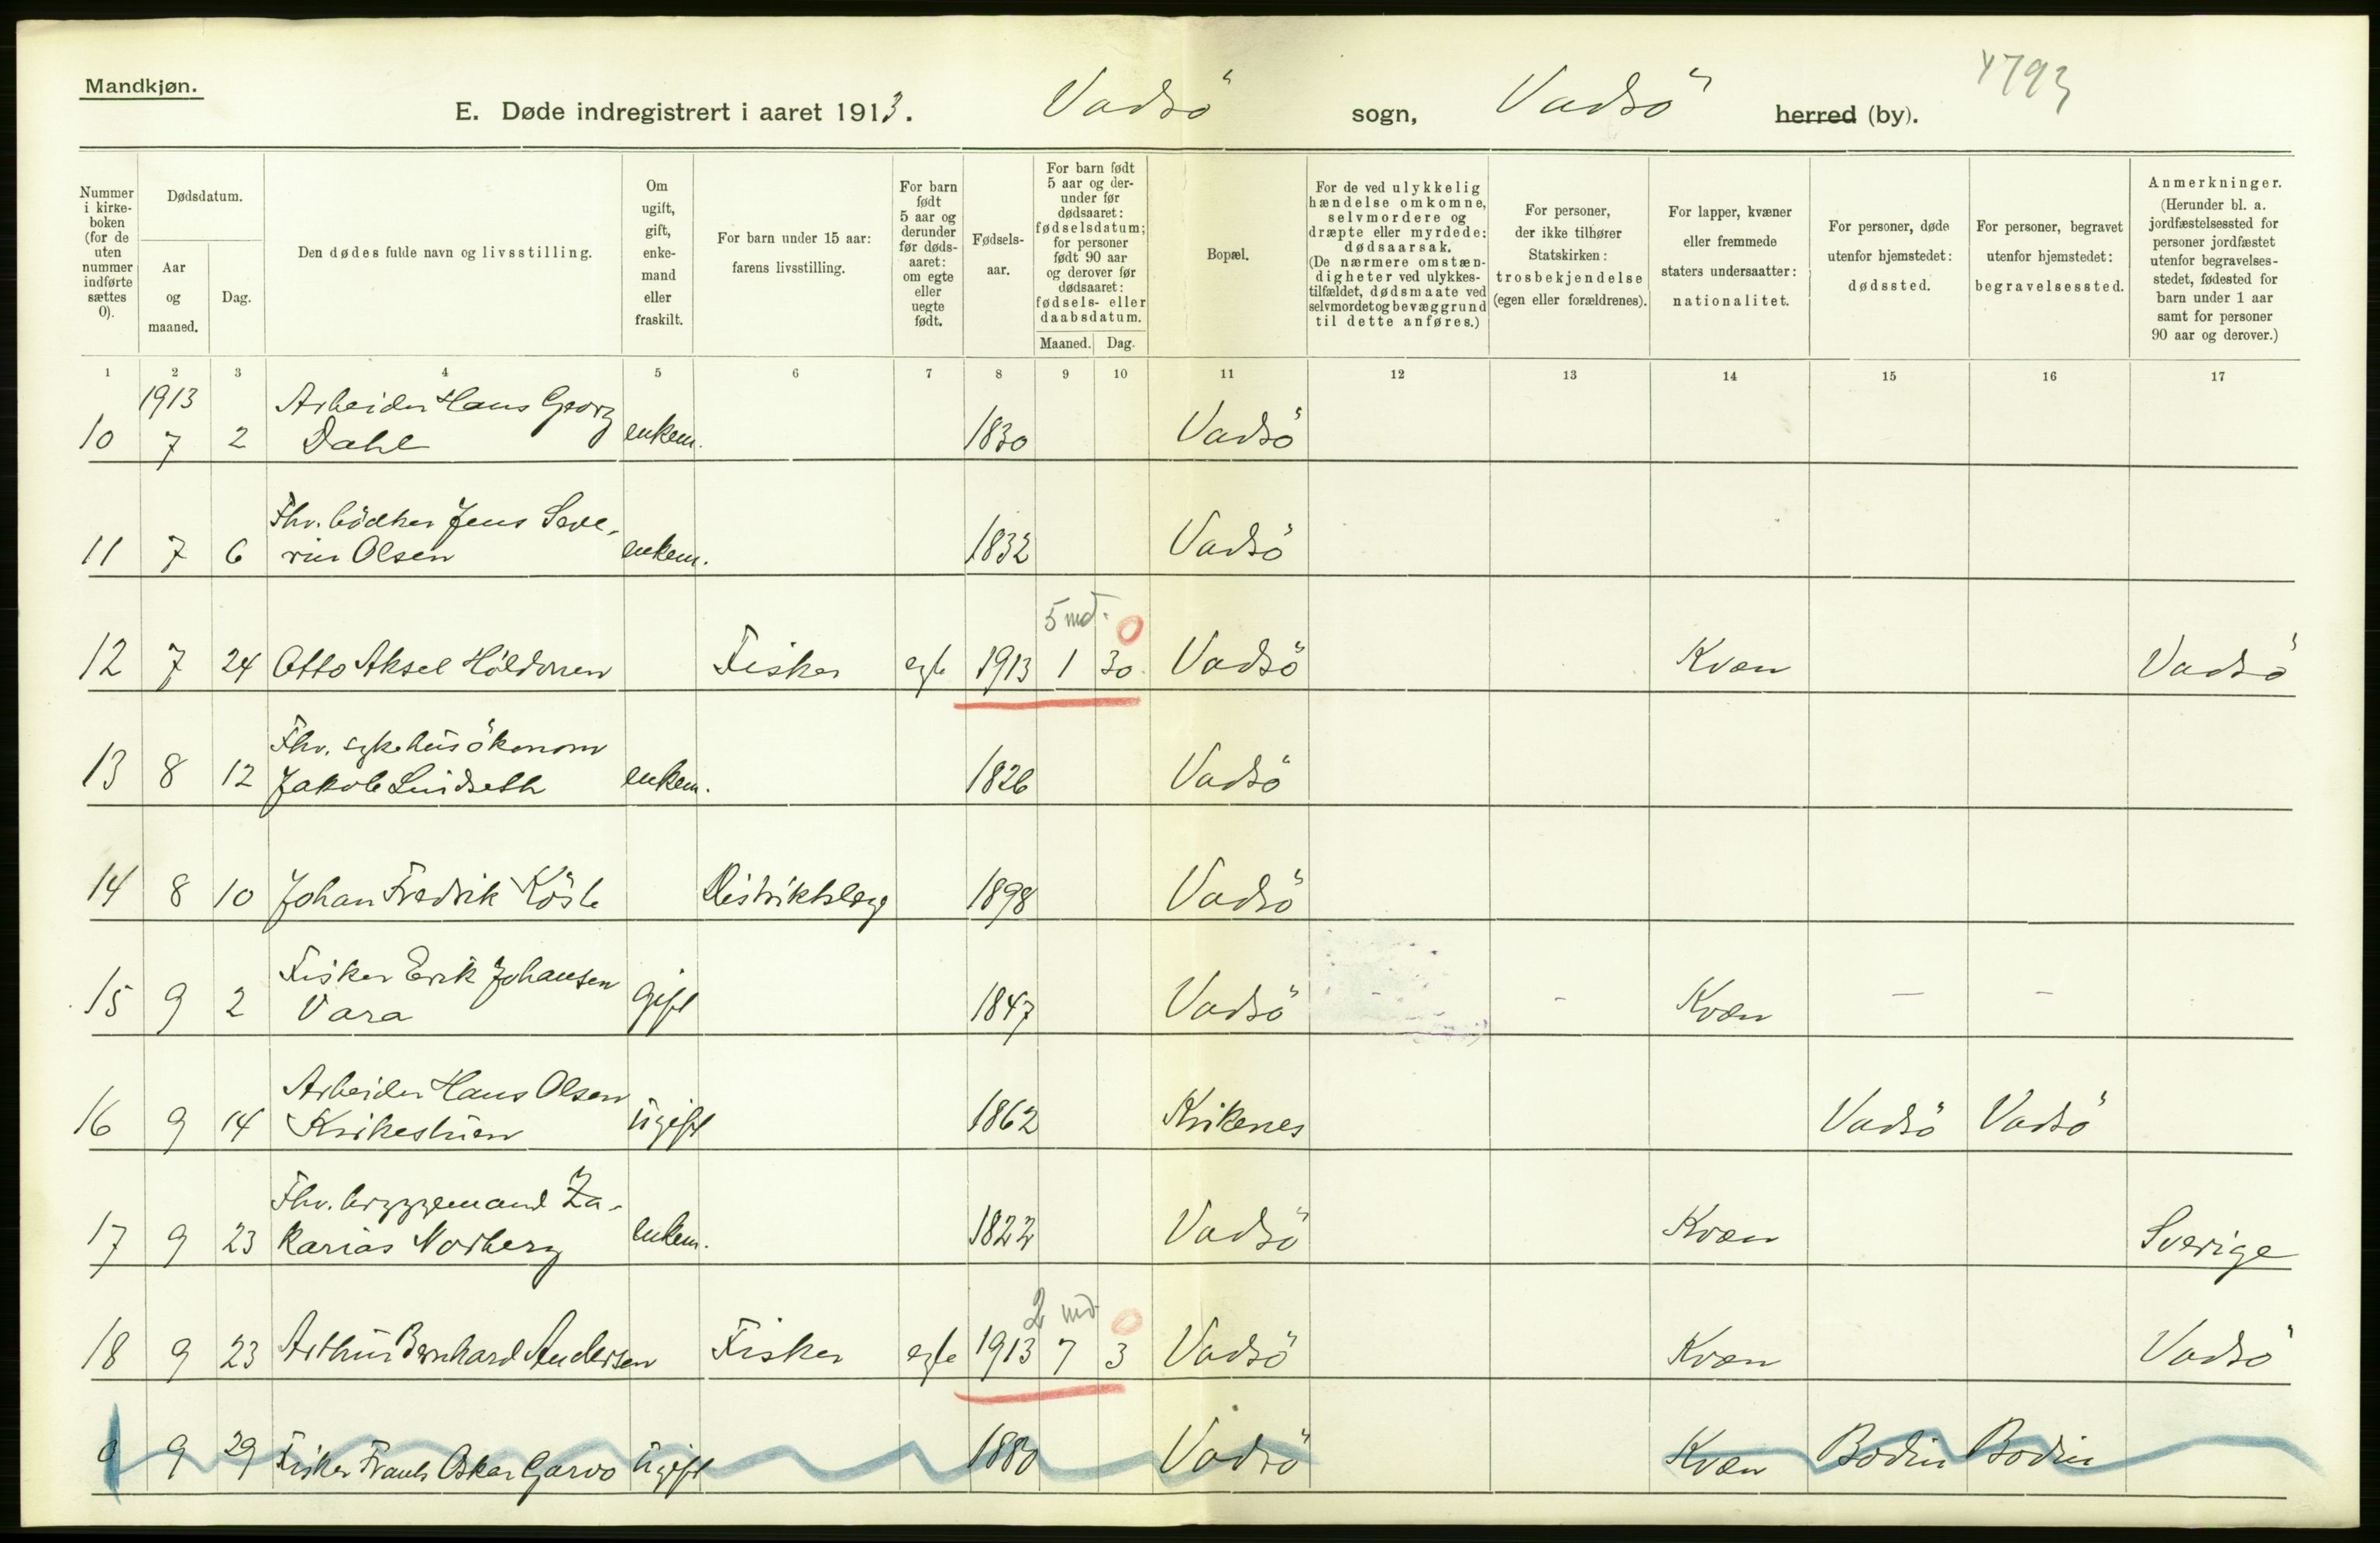 Mandkjøn.
E. Døde indregistrert i aaret 1913. Vadsö sogn, Vadsö herred (by).
Nummer i kirke-boken (for de uten nummer indførte sættes 0).
Dødsdatum.
Aar og maaned.
Dag.
Den dødes fulde navn og livsstilling.
Om ugift, gift, enke-mand eller fraskilt.
For barn under 15 aar: farens livsstilling.
For barn født 5 aar og derunder før døds-aaret: om egte eller uegte født.
Fødsels-aar.
For barn født 5 aar og der-under før dødsaaret: fødselsdatum; for personer født 90 aar og derover før dødsaaret: fødsels- eller daabsdatum.
Maaned. Dag.
Bopæl.
For de ved ulykkelig hændelse omkomne, selvmordere og dræpte eller myrdede: dødsaarsak. (De nærmere omstæn-digheter ved ulykkes-tilfældet, dødsmaate ved selvmordet og bevæggrund til dette anføres.)
For personer, der ikke tilhører Statskirken: trosbekjendelse (egen eller forældrenes).
For lapper, kvæner eller fremmede staters undersaatter: nationalitet.
For personer, døde utenfor hjemstedet: dødssted.
For personer, begravet utenfor hjemstedet: begravelsessted.
Anmerkninger. (Herunder bl. a. jordfæstelsessted for personer jordfæstet utenfor begravelses-stedet, fødested for barn under 1 aar samt for personer 90 aar og derover.)
1 2 3 4 5 6 7 8 9 10 11 12 13 14 15 16 17
1913 Arbeider Hans Georg
10 7 2 Dahl enkem. 1830 Vadsö
Fhv. bödker Jens Seve-
11 7 6 rin Olsen enkem. 1832 Vadsö
5 md. 0
12 7 24 Otto Aksel Höldonen Fisker egte 1913 1 30 Vadsö Kvæn Vadsö
Fhv. sykehusökonom
13 8 12 Jakob Lindseth enkem. 1826 Vadsö
14 8 10 Johan Fredrik Köste Distriktslæge 1898 Vadsö
Fisker Erik Johansen
15 9 2 Vara gift 1847 Vadsö - - Kvæn - -
Arbeider Hans Olsen
16 9 14 Krikestuen ugift 1862 Kirkenes Vadsö Vadsö
Fhv. bryggemand Za-
17 9 23 karias Norberg enkem. 1822 Vadsö Kvæn Sverige
2 md. 0
18 9 23 Arthur Bernhard Andersen Fisker egte 1913 7 3 Vadsö Kvæn Vadsö
0 9 29 Fisker Frants Oskar Garvo ugift 1880 Vadsö Kvæn Bodin Bodin